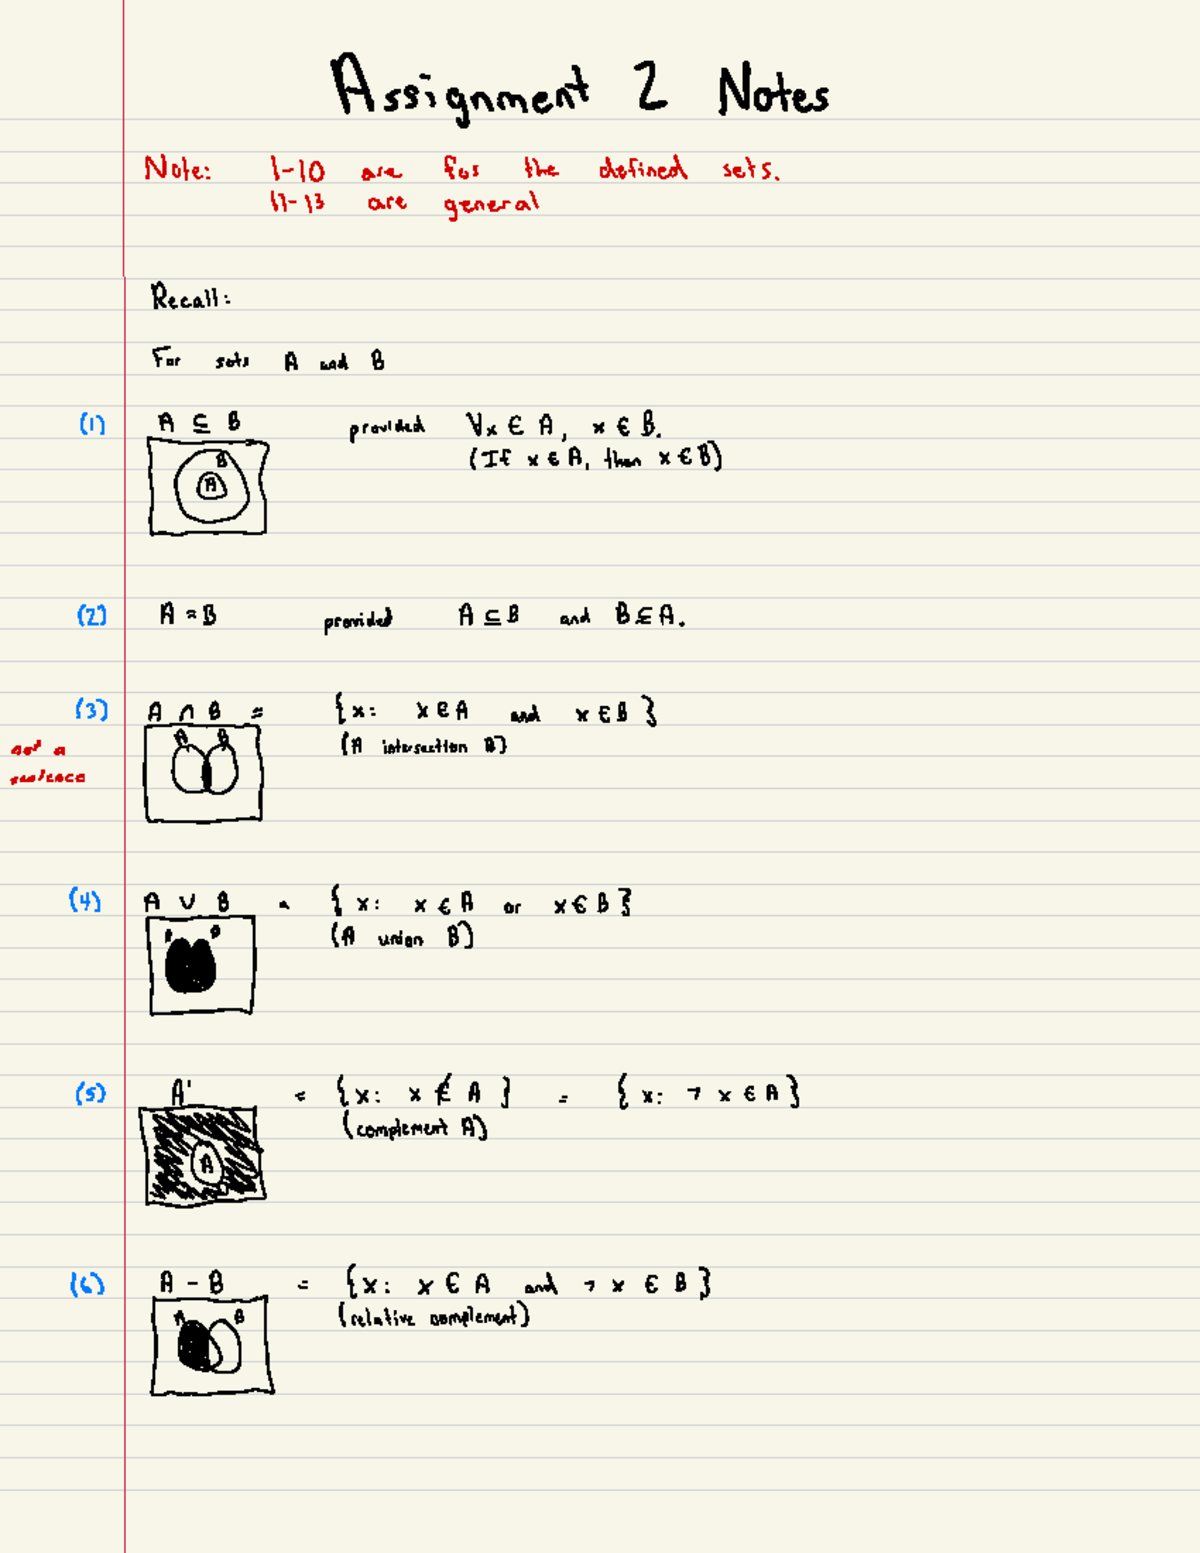 Assignment 2 Notes
Note: 1-10 are for the defined sets.
11-13 are general
Recall:
For sets A and B
(1) A ⊆ B provided ∀x ∈ A, x ∈ B.
(If x ∈ A, then x ∈ B)
B
A
(2) A = B provided A ⊆ B and B ⊆ A.
(3) A ∩ B = {x: x ∈ A and x ∈ B}
A B (A intersection B)
not a
sentence
(4) A ∪ B = {x: x ∈ A or x ∈ B}
A B (A union B)
(5) A' = {x: x ∉ A} = {x: ¬ x ∈ A}
(complement A)
A
(6) A - B = {x: x ∈ A and ¬ x ∈ B}
A B (relative complement)